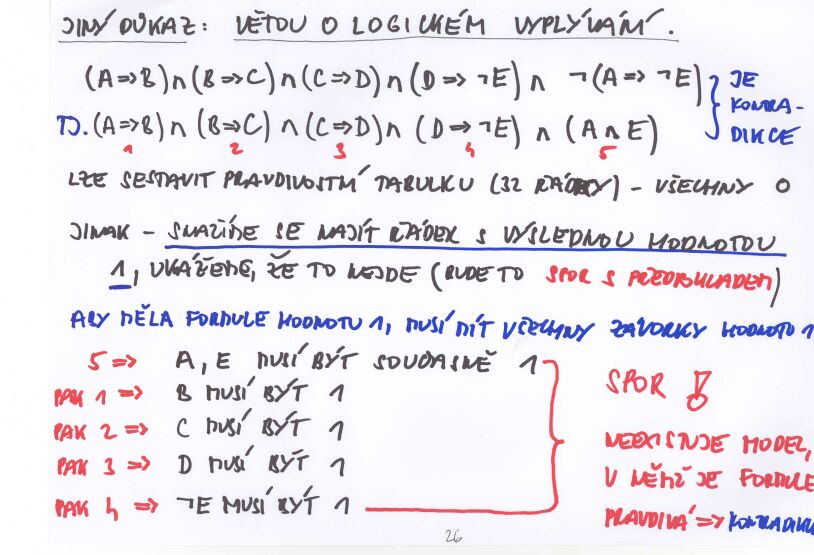 JINÝ DŮKAZ: VĚTOU O LOGICKÉM VYPLÝVÁNÍ.
(A⇒B)∩(B⇒C)∩(C⇒D)∩(D⇒¬E)∩ ¬(A⇒¬E) } JE KONTRA-DIKCE
TJ. (A⇒B)∩(B⇒C)∩(C⇒D)∩(D⇒¬E)∩(A∩E)
1 2 3 4 5
LZE SESTAVIT PRAVDIVOSTNÍ TABULKU (32 ŘÁDKY) - VŠECHNY 0
JINAK - SNAŽÍME SE NAJÍT ŘÁDEK S VÝSLEDNOU HODNOTOU
1, UKÁŽEME, ŽE TO NEJDE (BUDE TO SPOR S PŘEDPOKLADEM)
ABY MĚLA FORMULE HODNOTU 1, MUSÍ MÍT VŠECHNY ZÁVORKY HODNOTO 1
5 ⇒ A, E MUSÍ BÝT SOUČASNĚ 1
PAK 1 ⇒ B MUSÍ BÝT 1
PAK 2 ⇒ C MUSÍ BÝT 1
PAK 3 ⇒ D MUSÍ BÝT 1
PAK 4 ⇒ ¬E MUSÍ BÝT 1
SPOR !
NEEXISTUJE MODEL,
V NĚMŽ JE FORMULE
PRAVDIVÁ ⇒ KONTRADIKC
26